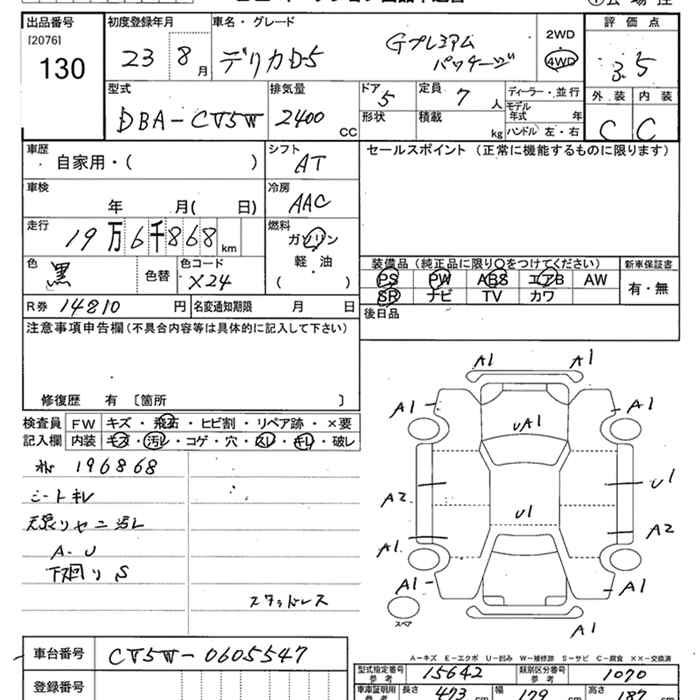 出品番号 初度登録年月 車名・グレード 評価点
[2076]
130
23 8月 デリカD5 Gプレミアム パッケージ 2WD 4WD 3.5
型式 排気量 ドア 定員 ディーラー・並行 外装 内装
DBA-CV5W 2400 CC 5 7人 モデル年式 年 C C
形状 積載 kg ハンドル 左・右
車歴 シフト セールスポイント (正常に機能するものに限ります)
自家用・( ) AT
車検 冷房
年 月( 日) AAC
走行 燃料
19万6千868km ガソリン
軽・油
( )
色 色コード 装備品 (純正品に限り○をつけてください) 新車保証書
黒 色替 X24 PS PW ABS エアB AW 有・無
SR ナビ TV カワ
R券 14810円 名変通知期限 月 日 後日品
注意事項申告欄 (不具合内容等は具体的に記入して下さい)
修復歴 有 〔箇所 〕
検査員 FW キズ・飛石・ヒビ割・リペア跡・×要
記入欄 内装 キズ・汚レ・コゲ・穴・スレ・キレ・破レ
196868
シートキレ
天張リヤニ汚レ
A-U
下廻りS
スタッドレス
A1 A1
A1 A1
UA1
A2 U1
U1
A1 A2
A1 A1
スペア
A1
A-キズ E-エクボ U-凹み W-補修跡 S-サビ C-腐食 XX-交換済
車台番号 CV5W-0605547
型式指定番号 参考 15642 類別区分番号 参考 1070
登録番号
車庫証明用 参考 長さ 473 cm 幅 179 cm 高さ 187 cm